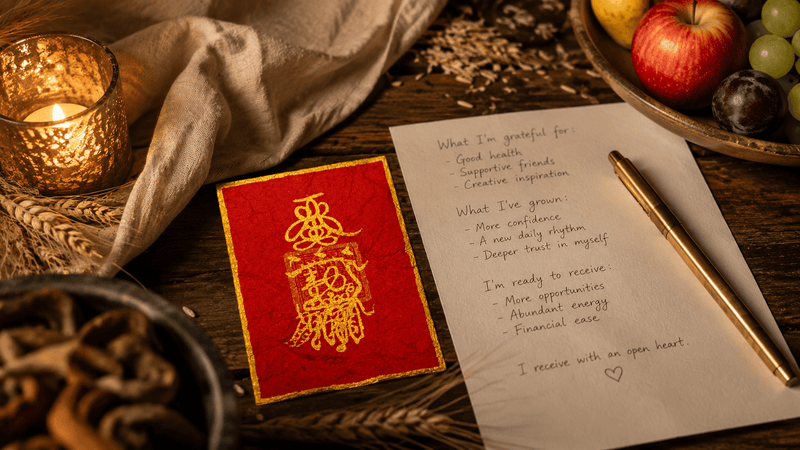 What I'm grateful for:
- Good health
- Supportive friends
- Creative inspiration
What I've grown:
- More confidence
- A new daily rhythm
- Deeper trust in myself
I'm ready to receive:
- More opportunities
- Abundant energy
- Financial ease
I receive with an open heart.
♡